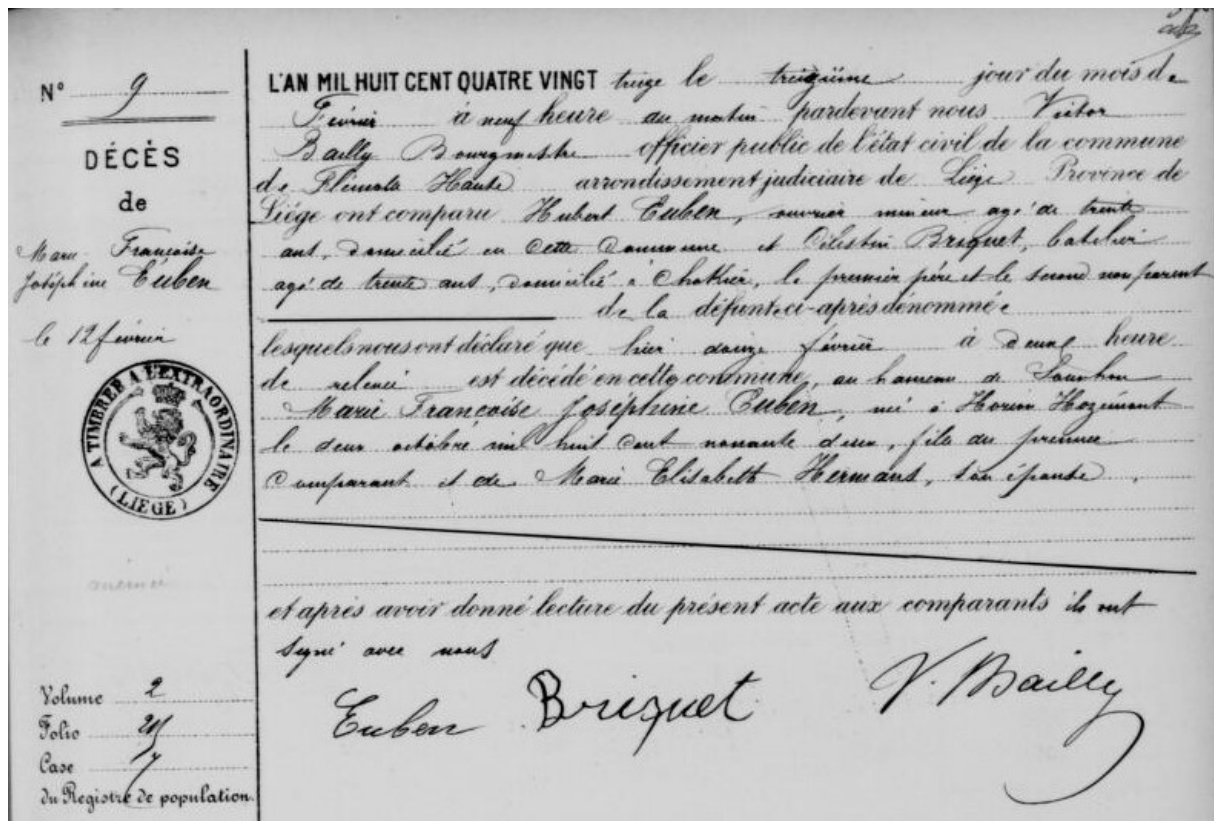 N° 9
DÉCÈS
de
Marie Françoise
Joséphine Euben
le 12 février
A TIMBRER A L'EXTRAORDINAIRE
(LIÈGE)
Volume 2
Folio
Case 7
du Registre de population.
L'AN MIL HUIT CENT QUATRE VINGT treize le treizième jour du mois de
Février à neuf heure du matin pardevant nous Victor
Bailly Bourgmestre officier public de l'état civil de la commune
de Flémalle Haute arrondissement judiciaire de Liège Province de
Liége ont comparu Hubert Euben, ouvrier mineur agé de trente
ans, domicilié en cette commune et Célestin Briquet, batelier
agé de trente ans, domicilié à Chokier, le premier père et le second non parent
de la défunte ci-après dénommée
lesquels nous ont déclaré que hier douze février à deux heure
de relevée est décédé en cette commune, au hameau de
Marie Françoise Joséphine Euben, né à Horion Hozémont
le deux octobre mil huit cent nonante deux, fille du premier
comparant et de Marie Elisabeth Hermans, son épouse.
et après avoir donné lecture du présent acte aux comparants ils ont
signé avec nous
Euben Briquet V. Bailly